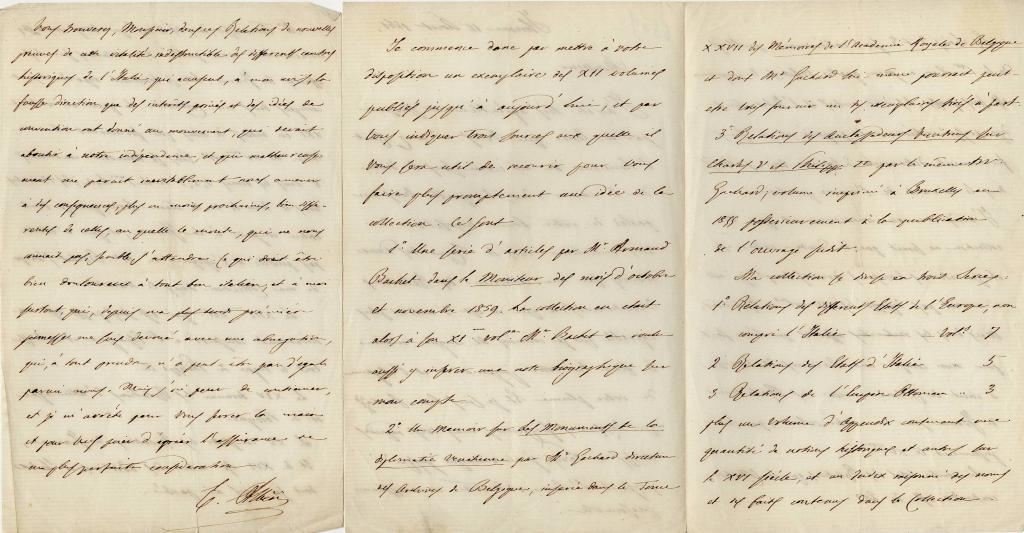 Vous trouverez, Monsieur, dans ces Relations de nouvelles
preuves de cette vitalité indestructible des differents centres
historiques de l'Italie, qui accusent, à mon avis, la
fausse direction que des interêts privés et des idées de
convention ont donné au mouvement, qui devait
aboutir à notre indépendence, et qui malheureuse
ment me parait inevitablement nous amener
à des consequences, plus ou moins prochaines, bien diffe-
rentes de celles, au quelle le monde, qui ne nous
connait pas, semble s'attendre. Ce qui doit être
bien douloureux à tout bon italien, et à moi
surtout, qui, depuis ma plus tendre première
jeunesse me suis devoué avec une abnegation,
qui, à tout prendre, n'a peut-être pas d'égale
parmi nous. Mais j'ai peur de continuer,
et je m'arrête pour vous serrer la main
et pour vous prier d'agréer l'assurance de
ma plus parfaite consideration
E. Albèri
Je commence donc par mettre à votre
disposition un exemplaire des XII volumes
publiés jusqu'à aujourd'hui, et par
vous indiquer trois sources aux quelle il
vous sera util de recourir pour vous
faire plus promptement une idée de la
collection. Ce sont
1.° Une serie d'articles par Mr. Armand
Baschet dans le Moniteur des mois d'octobre
et novembre 1859. La collection en etait
alors à son XI.me vol.me Mr. Baschet a voulu
aussi y inserer une note biographique sur
mon compte
2.° Un Memoir sur les Monuments de la
diplomatie vénitienne par Mr. Gachard directeur
des Archives de Belgique, inserée dans le Tome
XXVII des Mémoires de l'Academie Royale de Belgique
et dont Mr. Gachard lui-même pourrait peut-
etre vous fournir un des exemplaires tirés à part.
3.° Relations des Ambassadeurs Vénitiens sur
Charles V et Philippe II par le même Mr.
Gachard, volume imprimé à Bruxelles en
1855 posterieurement à la publication
de l'ouvrage susdit.
Ma collection se divise en trois Series:
1.° Relations des differents Etats de l'Europe, non
compris l'Italie Vols. 7
2 Relations des Etats d'Italie 5
3 Relations de l'Empire Ottoman 3
plus un volume d'Appendix contenant une
quantité de notices historiques et autres sur
le XVI siècle, et un Index des noms
et des faits contenus dans la Collection